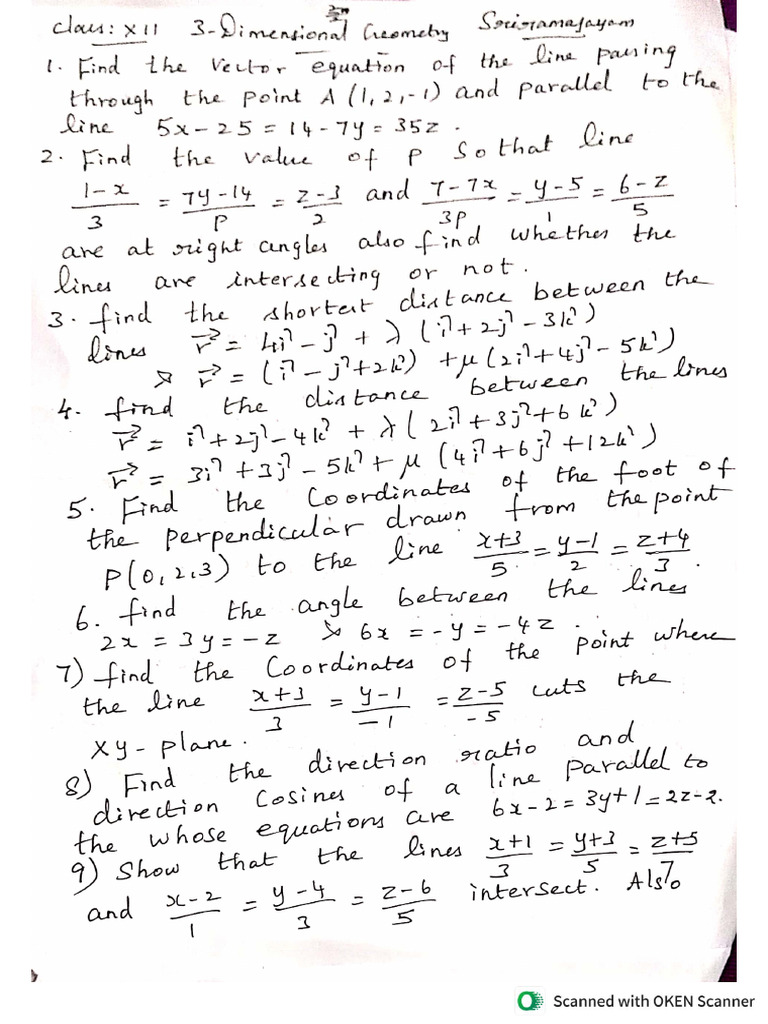 Class: XII 3-Dimensional Geometry Sriramajayam
1. Find the vector equation of the line passing
through the point A (1, 2, -1) and parallel to the
line 5x - 25 = 14 - 7y = 35z.
2. Find the value of p so that line
(1-x)/3 = (7y-14)/p = (z-3)/2 and (7-7x)/3p = (y-5)/1 = (6-z)/5
are at right angles also find whether the
lines are intersecting or not.
3. find the shortest distance between the
lines r⃗ = 4i⃗ - j⃗ + λ (i⃗ + 2j⃗ - 3k⃗)
& r⃗ = (i⃗ - j⃗ + 2k⃗) + μ (2i⃗ + 4j⃗ - 5k⃗)
4. find the distance between the lines
r⃗ = i⃗ + 2j⃗ - 4k⃗ + λ (2i⃗ + 3j⃗ + 6k⃗)
r⃗ = 3i⃗ + 3j⃗ - 5k⃗ + μ (4i⃗ + 6j⃗ + 12k⃗)
5. Find the Coordinates of the foot of
the perpendicular drawn from the point
P(0, 2, 3) to the line (x+3)/5 = (y-1)/2 = (z+4)/3.
6. find the angle between the lines
2x = 3y = -z & 6x = -y = -4z.
7) find the Coordinates of the point where
the line (x+3)/3 = (y-1)/-1 = (z-5)/-5 cuts the
XY-plane.
8) Find the direction ratio and
direction Cosines of a line parallel to
the whose equations are 6x-2 = 3y+1 = 2z-2.
9) Show that the lines (x+1)/3 = (y+3)/5 = (z+5)/7
and (x-2)/1 = (y-4)/3 = (z-6)/5 intersect. Also
Scanned with OKEN Scanner